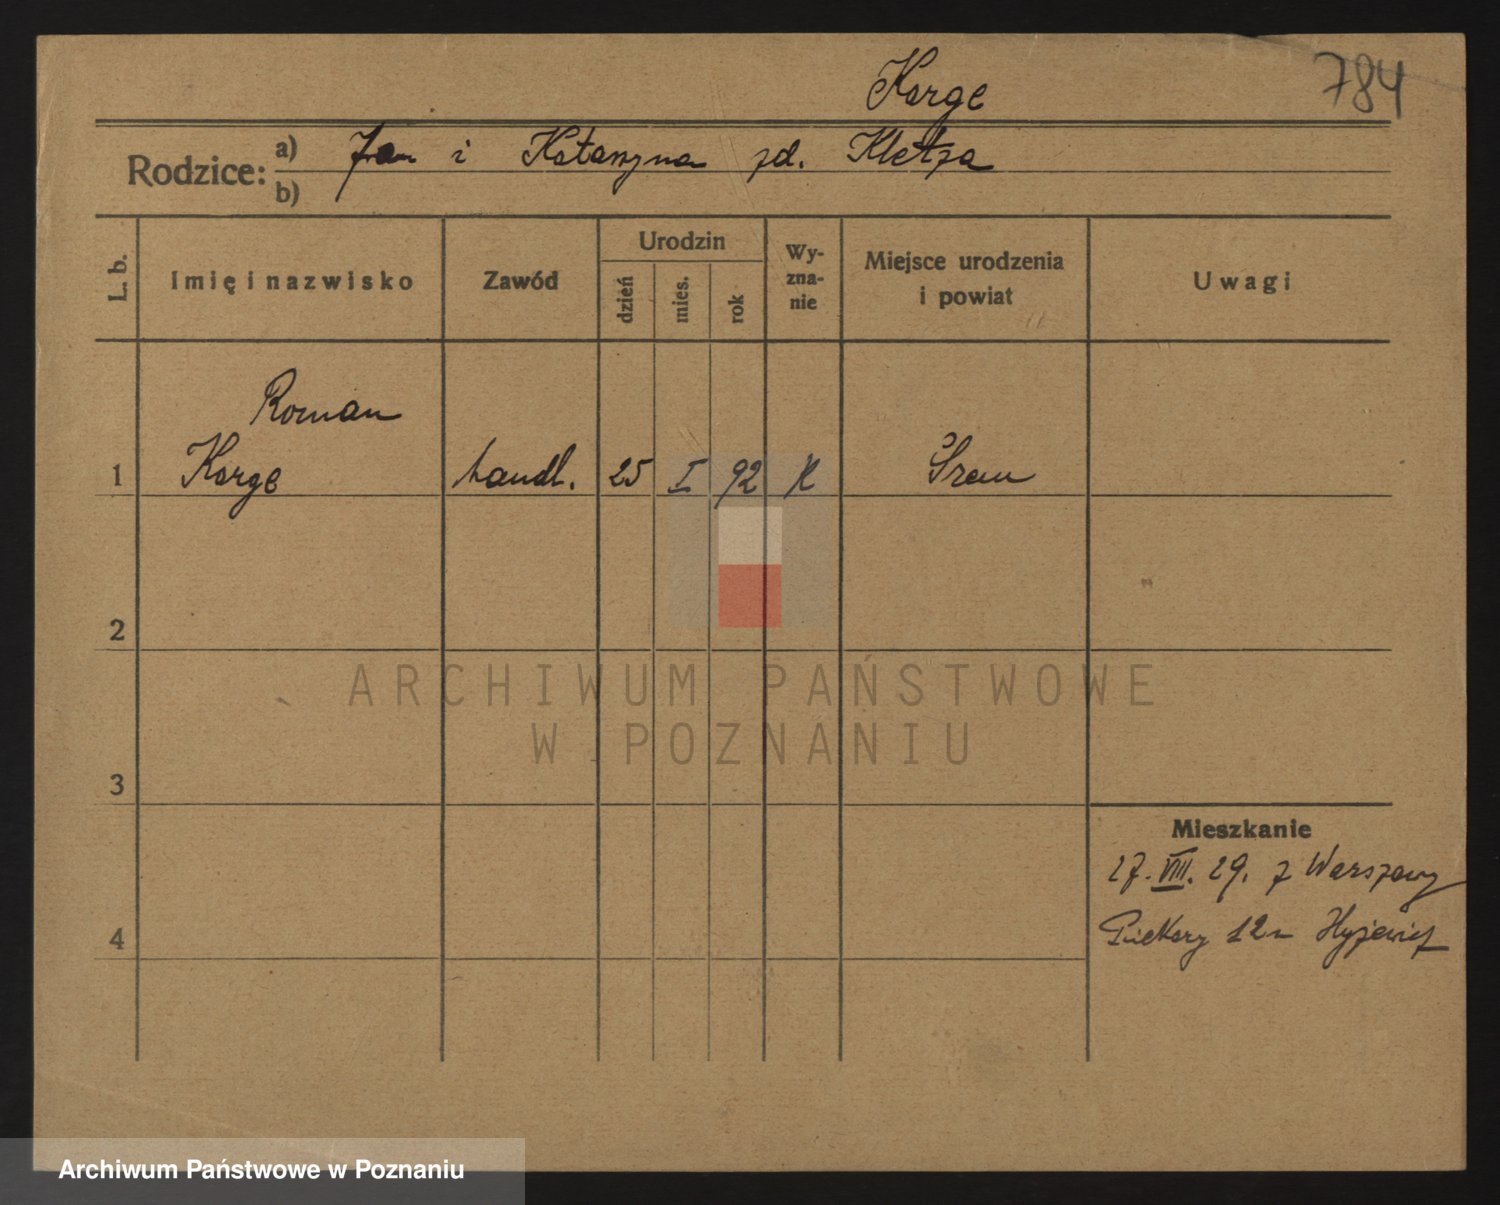 Karge
784
Rodzice: a) Jan i Katarzyna zd. Kletza
b)
L. b. Imię i nazwisko Zawód Urodzin dzień mies. rok Wy-zna-nie Miejsce urodzenia i powiat Uwagi
Roman
1 Karge handl. 25 I 92 K Srem
2
3
Mieszkanie
27. VIII. 29. z Warszawy
4 Piekary 12
ARCHIWUM PAŃSTWOWE
W POZNANIU
Archiwum Państwowe w Poznaniu